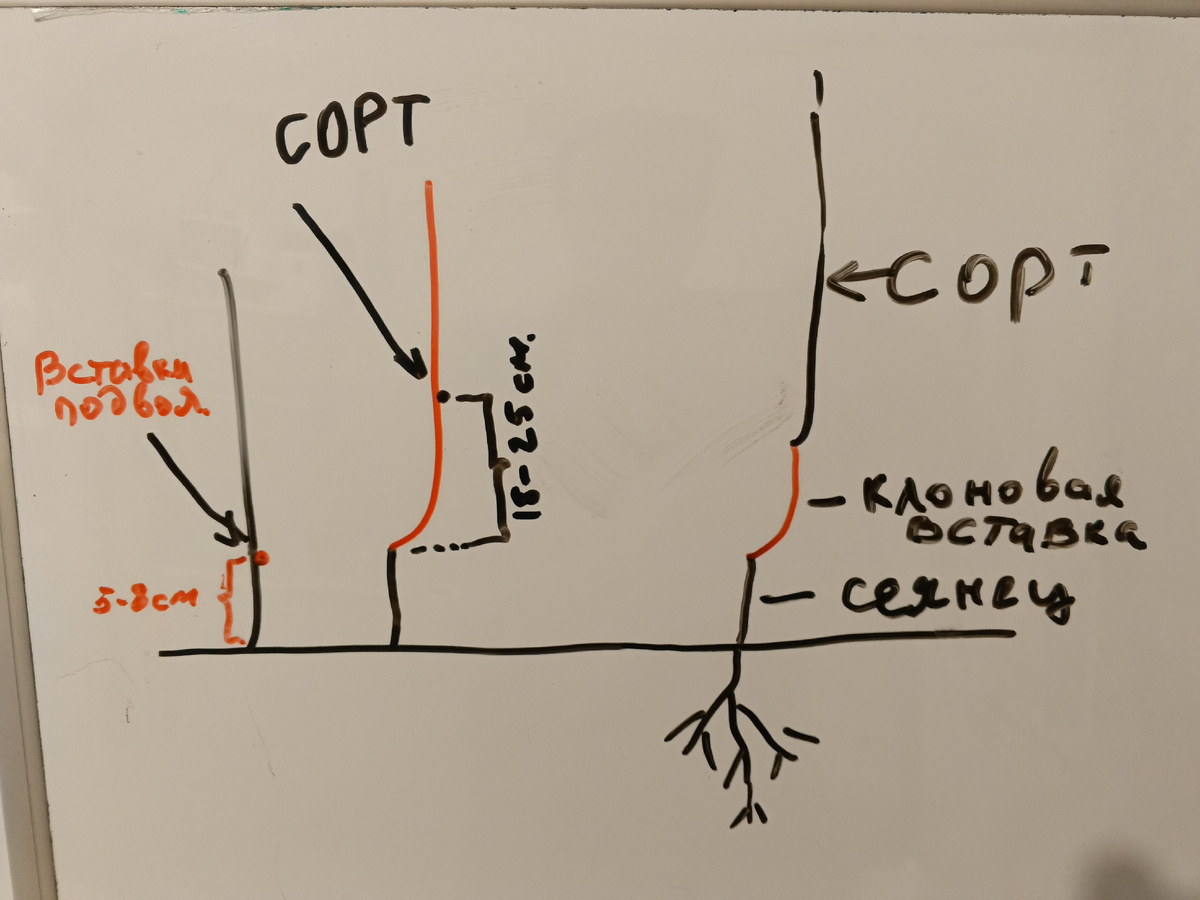 СОРТ
Вставки
подвоя.
5-8см
18-25см.
СОРТ
клоновая
вставка
сеянец